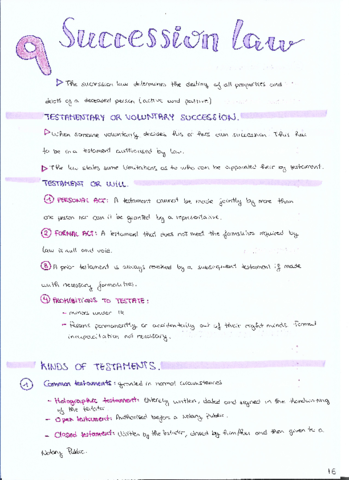 9 Succession law
▷ The succession law determines the destiny of all properties and
debts of a deceased person (active and passive)
TESTAMENTARY OR VOLUNTARY SUCCESSION.
▷ When someone voluntarily decides his or hers own succession. This has
to be in a testament authorised by law.
▷ The law states some limitations as to who can be appointed heir by testament.
TESTAMENT OR WILL.
1 PERSONAL ACT: A testament cannot be made jointly by more than
one person nor can it be granted by a representative.
2 FORMAL ACT: A testament that does not meet the formalities required by
law is null and void.
3 A prior testament is always revoked by a subsequent testament if made
with necessary formalities.
4 PROHIBITIONS TO TESTATE:
- minors under 14
- Persons permanently or accidentally out of their right minds. Formal
incapacitation not necessary.
KINDS OF TESTAMENTS.
1 Common testaments: granted in normal circumstances
- Holographic testament: Entirely written, dated and signed in the handwriting
of the testator
- Open testament: Authorised before a Notary Public.
- Closed testament: Written by the testator, closed by him/her and then given to a
Notary Public.
16